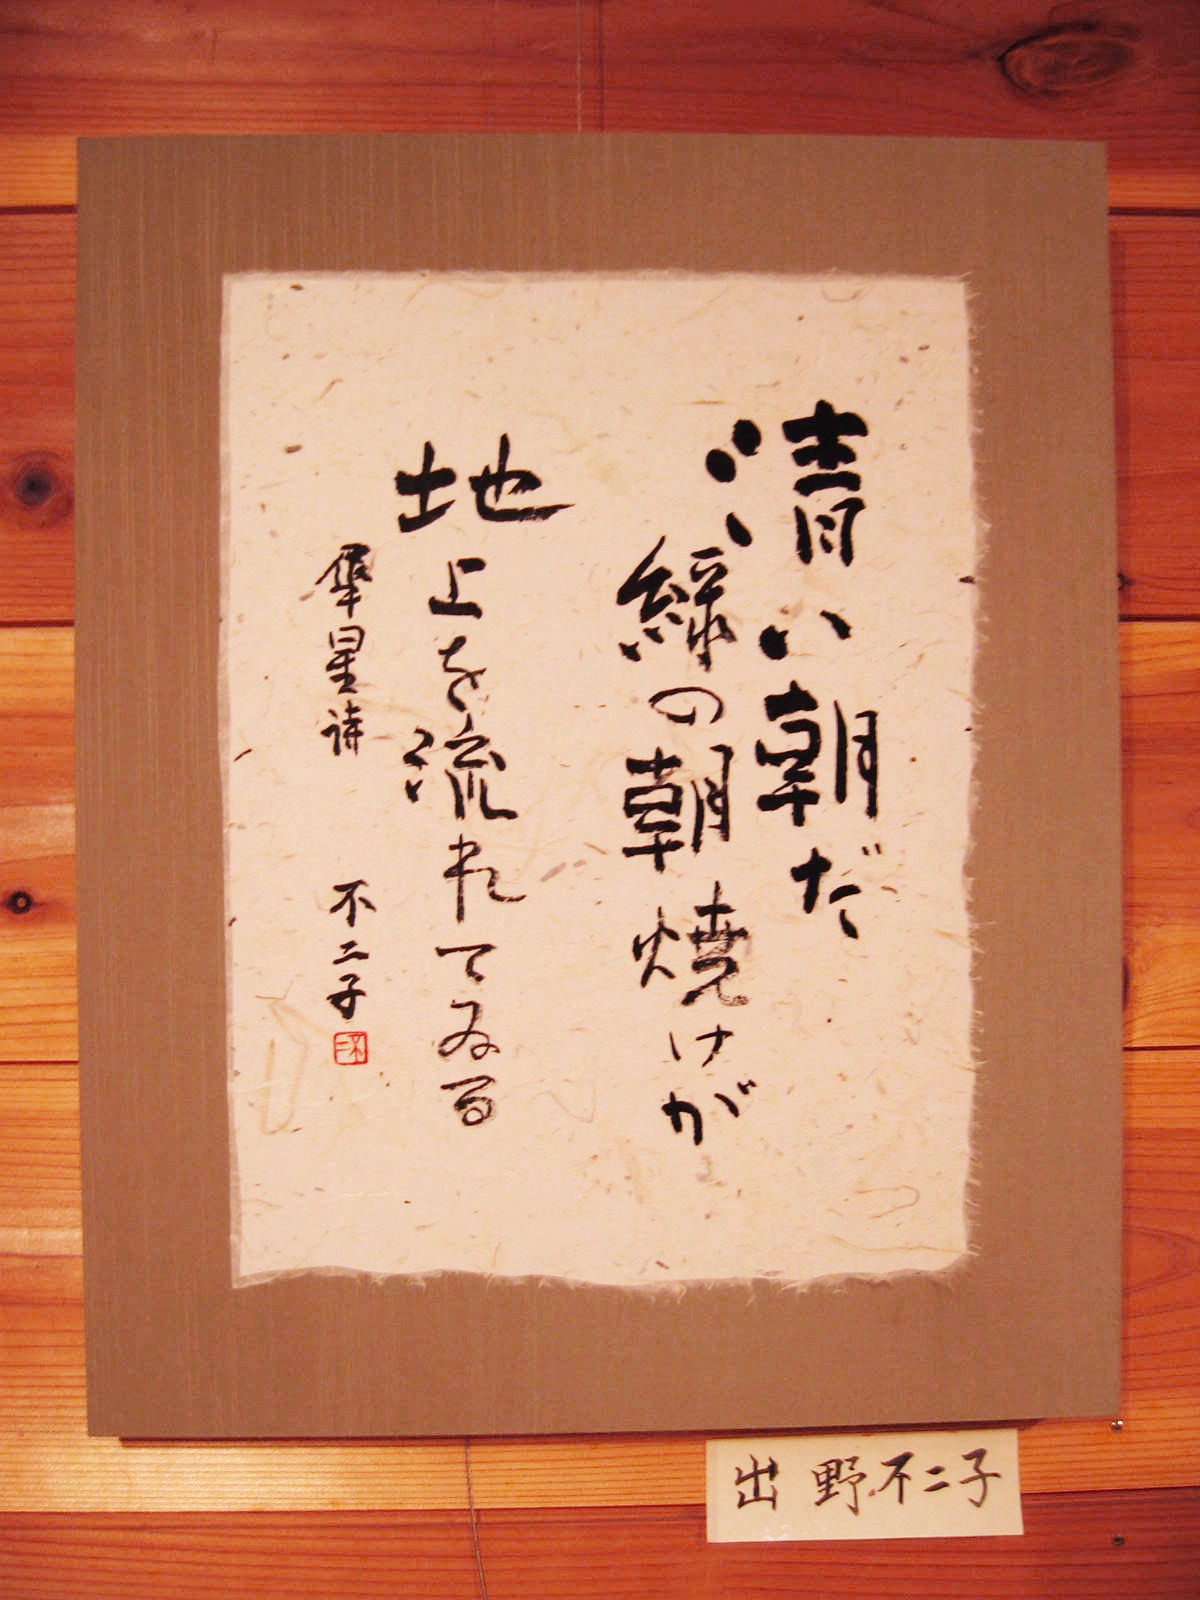 清い朝だ
緑の朝焼けが
地上を流れてゐる
犀星詩 不二子
出野不二子